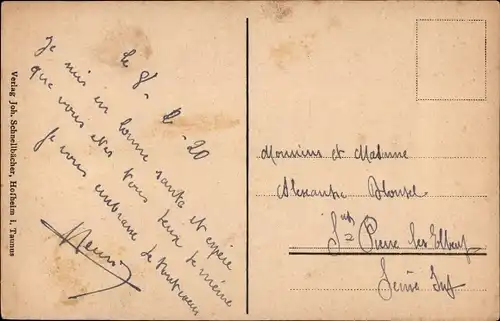 Le 8 - 2 - 20
Je suis en bonne santé et espère
que vous etes tous deux de même
Je vous embrasse de tout coeur
Henri
Monsieur et Madame
Alexandre
St Pierre les Elbeuf
Seine Inf
Verlag Joh. Schnellbächer, Hofheim i. Taunus